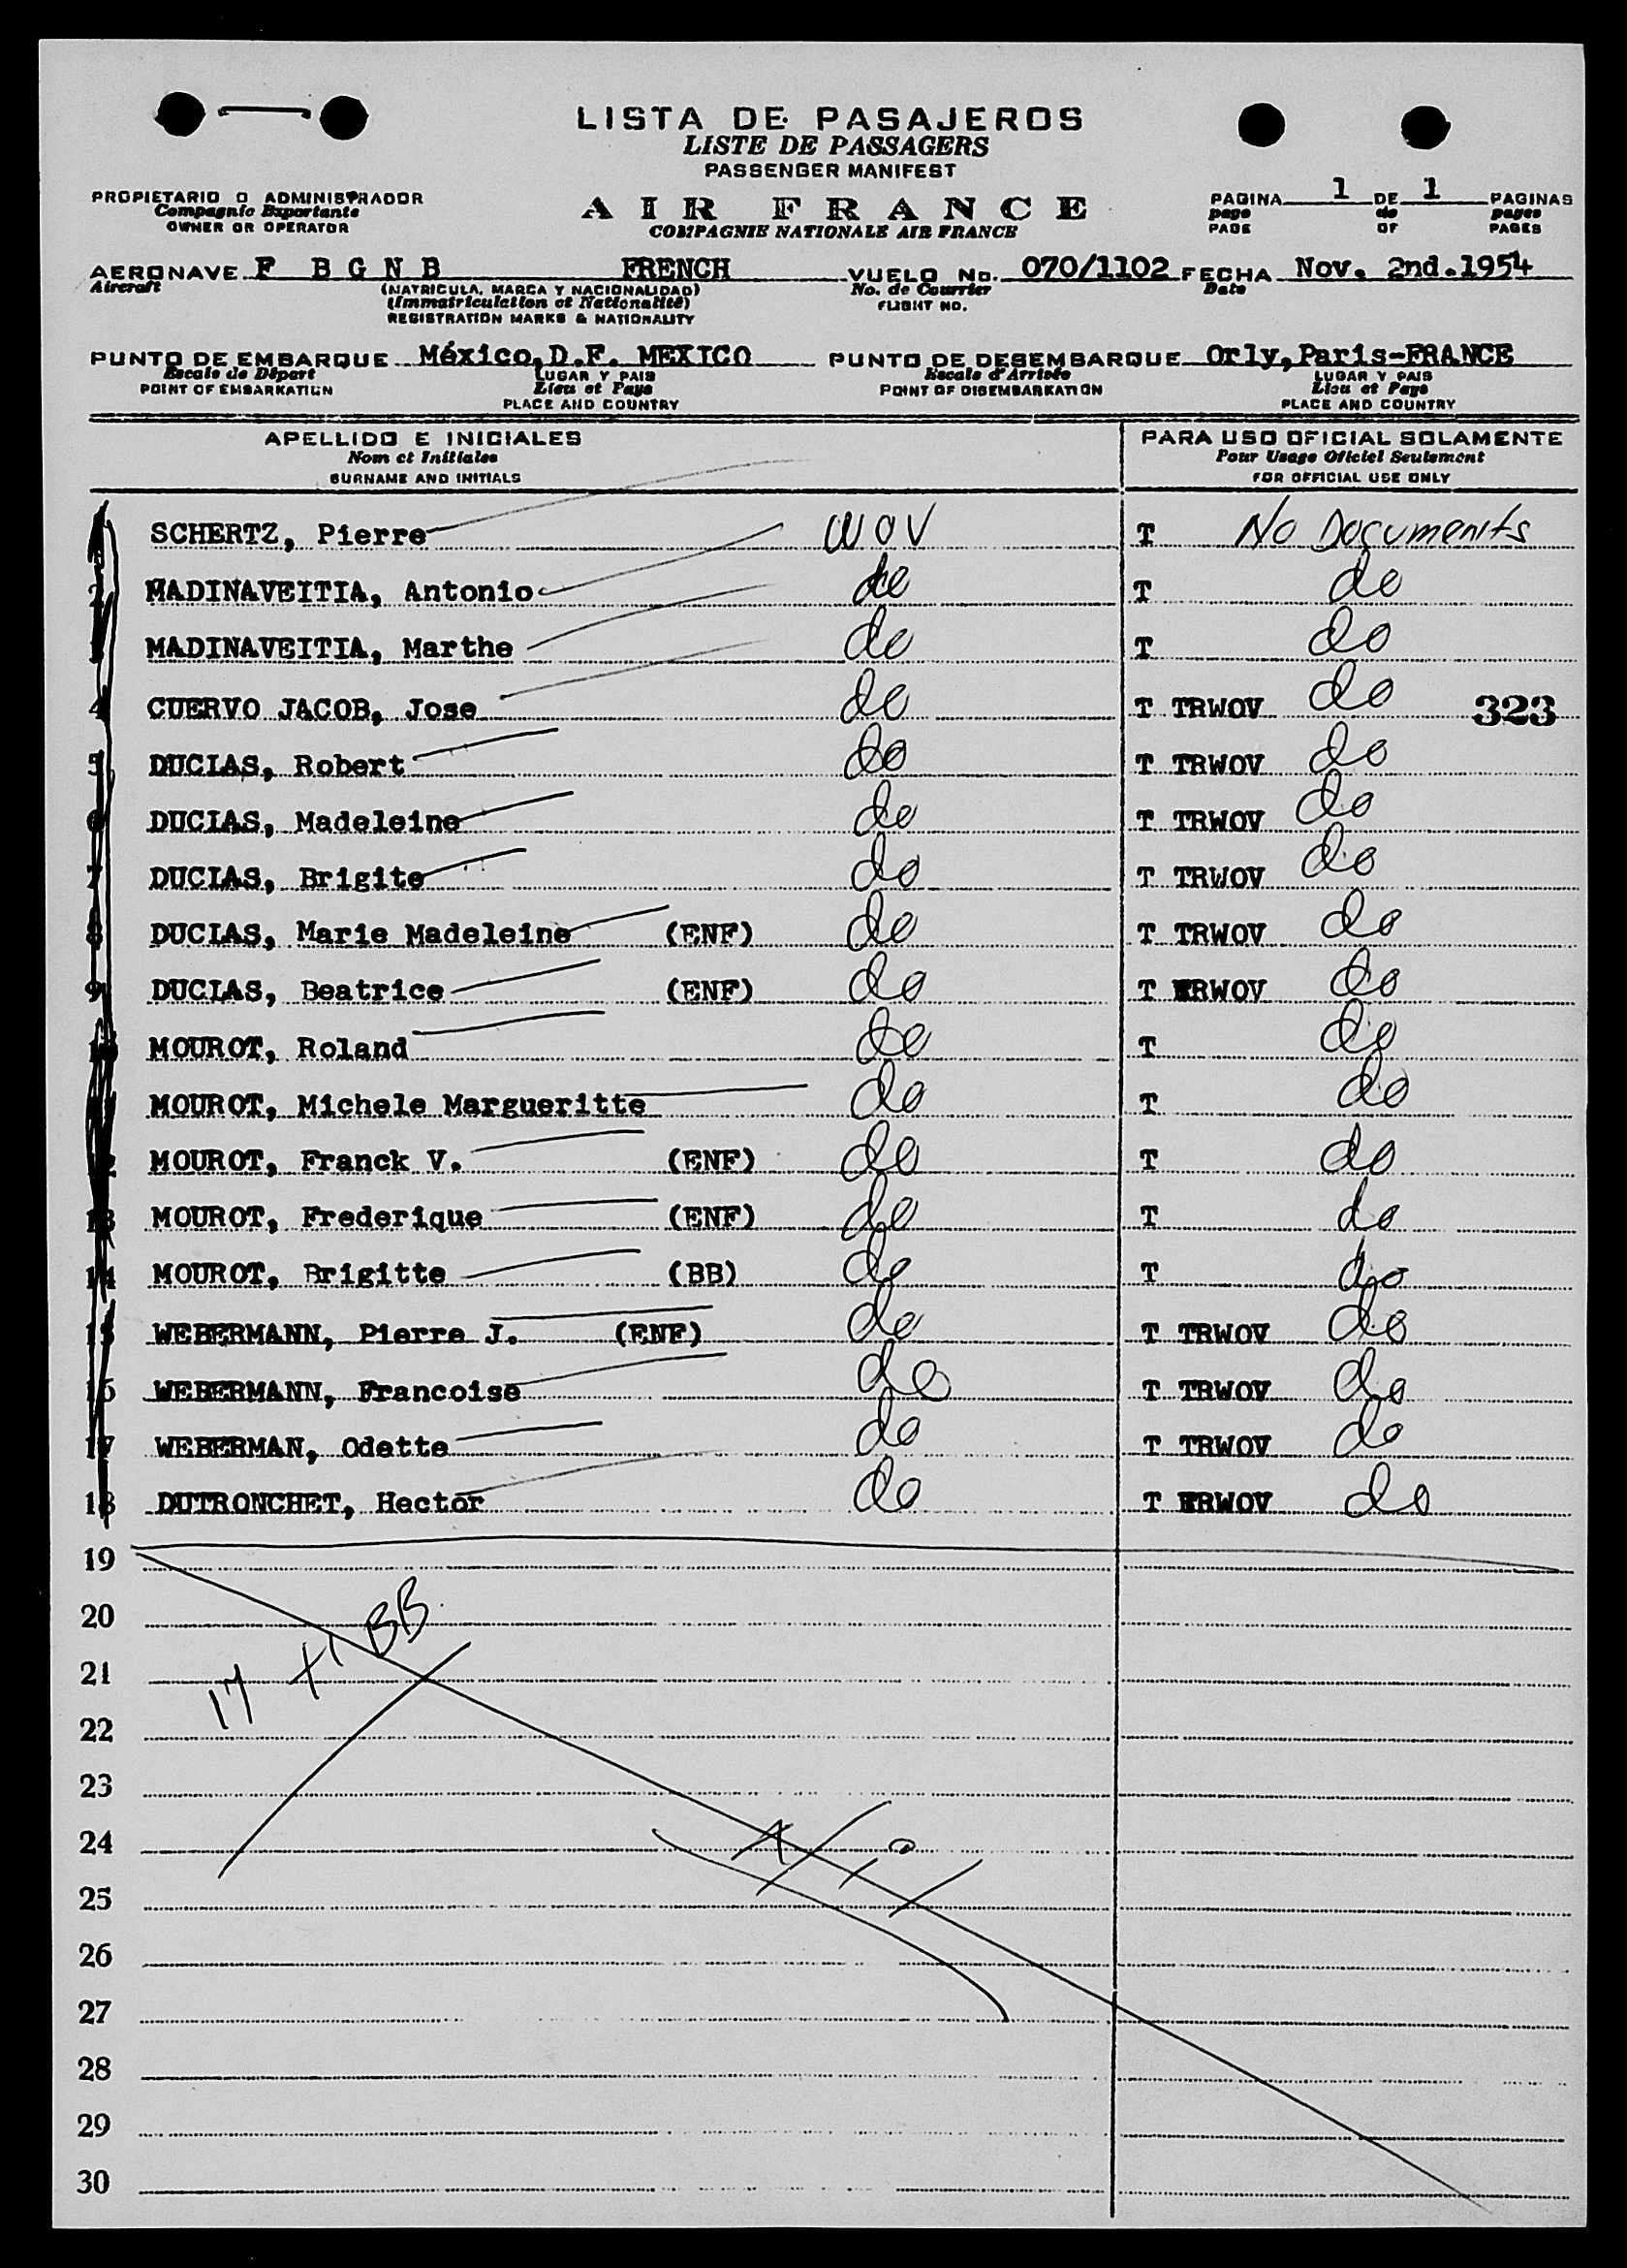 LISTA DE PASAJEROS
LISTE DE PASSAGERS
PASSENGER MANIFEST
PROPIETARIO O ADMINISTRADOR
Compagnie Exportante
OWNER OR OPERATOR
AIR FRANCE
COMPAGNIE NATIONALE AIR FRANCE
PAGINA 1 DE 1 PAGINAS
page de pages
PAGE OF PAGES
AERONAVE F B G N B FRENCH VUELO No. 070/1102 FECHA Nov. 2nd.1954
Aircraft (MATRICULA, MARCA Y NACIONALIDAD) No. de Courrier Date
(Immatriculation et Nationalité) FLIGHT NO.
REGISTRATION MARKS & NATIONALITY
PUNTO DE EMBARQUE México,D.F. MEXICO PUNTO DE DESEMBARQUE Orly,Paris-FRANCE
Escale de Départ LUGAR Y PAIS Escale d'Arrivée LUGAR Y PAIS
POINT OF EMBARKATION Lieu et Pays POINT OF DISEMBARKATION Lieu et Pays
PLACE AND COUNTRY PLACE AND COUNTRY
APELLIDO E INICIALES PARA USO OFICIAL SOLAMENTE
Nom et Initiales Pour Usage Officiel Seulement
SURNAME AND INITIALS FOR OFFICIAL USE ONLY
SCHERTZ, Pierre WOV T No Documents
2 MADINAVEITIA, Antonio do T do
MADINAVEITIA, Marthe do T do
4 CUERVO JACOB, Jose do T TRWOV do 323
5 DUCIAS, Robert do T TRWOV do
6 DUCIAS, Madeleine do T TRWOV do
7 DUCIAS, Brigite do T TRWOV do
8 DUCIAS, Marie Madeleine (ENF) do T TRWOV do
9 DUCIAS, Beatrice (ENF) do T TRWOV do
10 MOUROT, Roland do T do
MOUROT, Michele Margueritte do T do
2 MOUROT, Franck V. (ENF) do T do
13 MOUROT, Frederique (ENF) do T do
14 MOUROT, Brigitte (BB) do T do
15 WEBERMANN, Pierre J. (ENF) do T TRWOV do
16 WEBERMANN, Francoise do T TRWOV do
17 WEBERMAN, Odette do T TRWOV do
18 DUTRONCHET, Hector do T TRWOV do
19
20
17 +1 BB
21
22
23
24
25
26
27
28
29
30